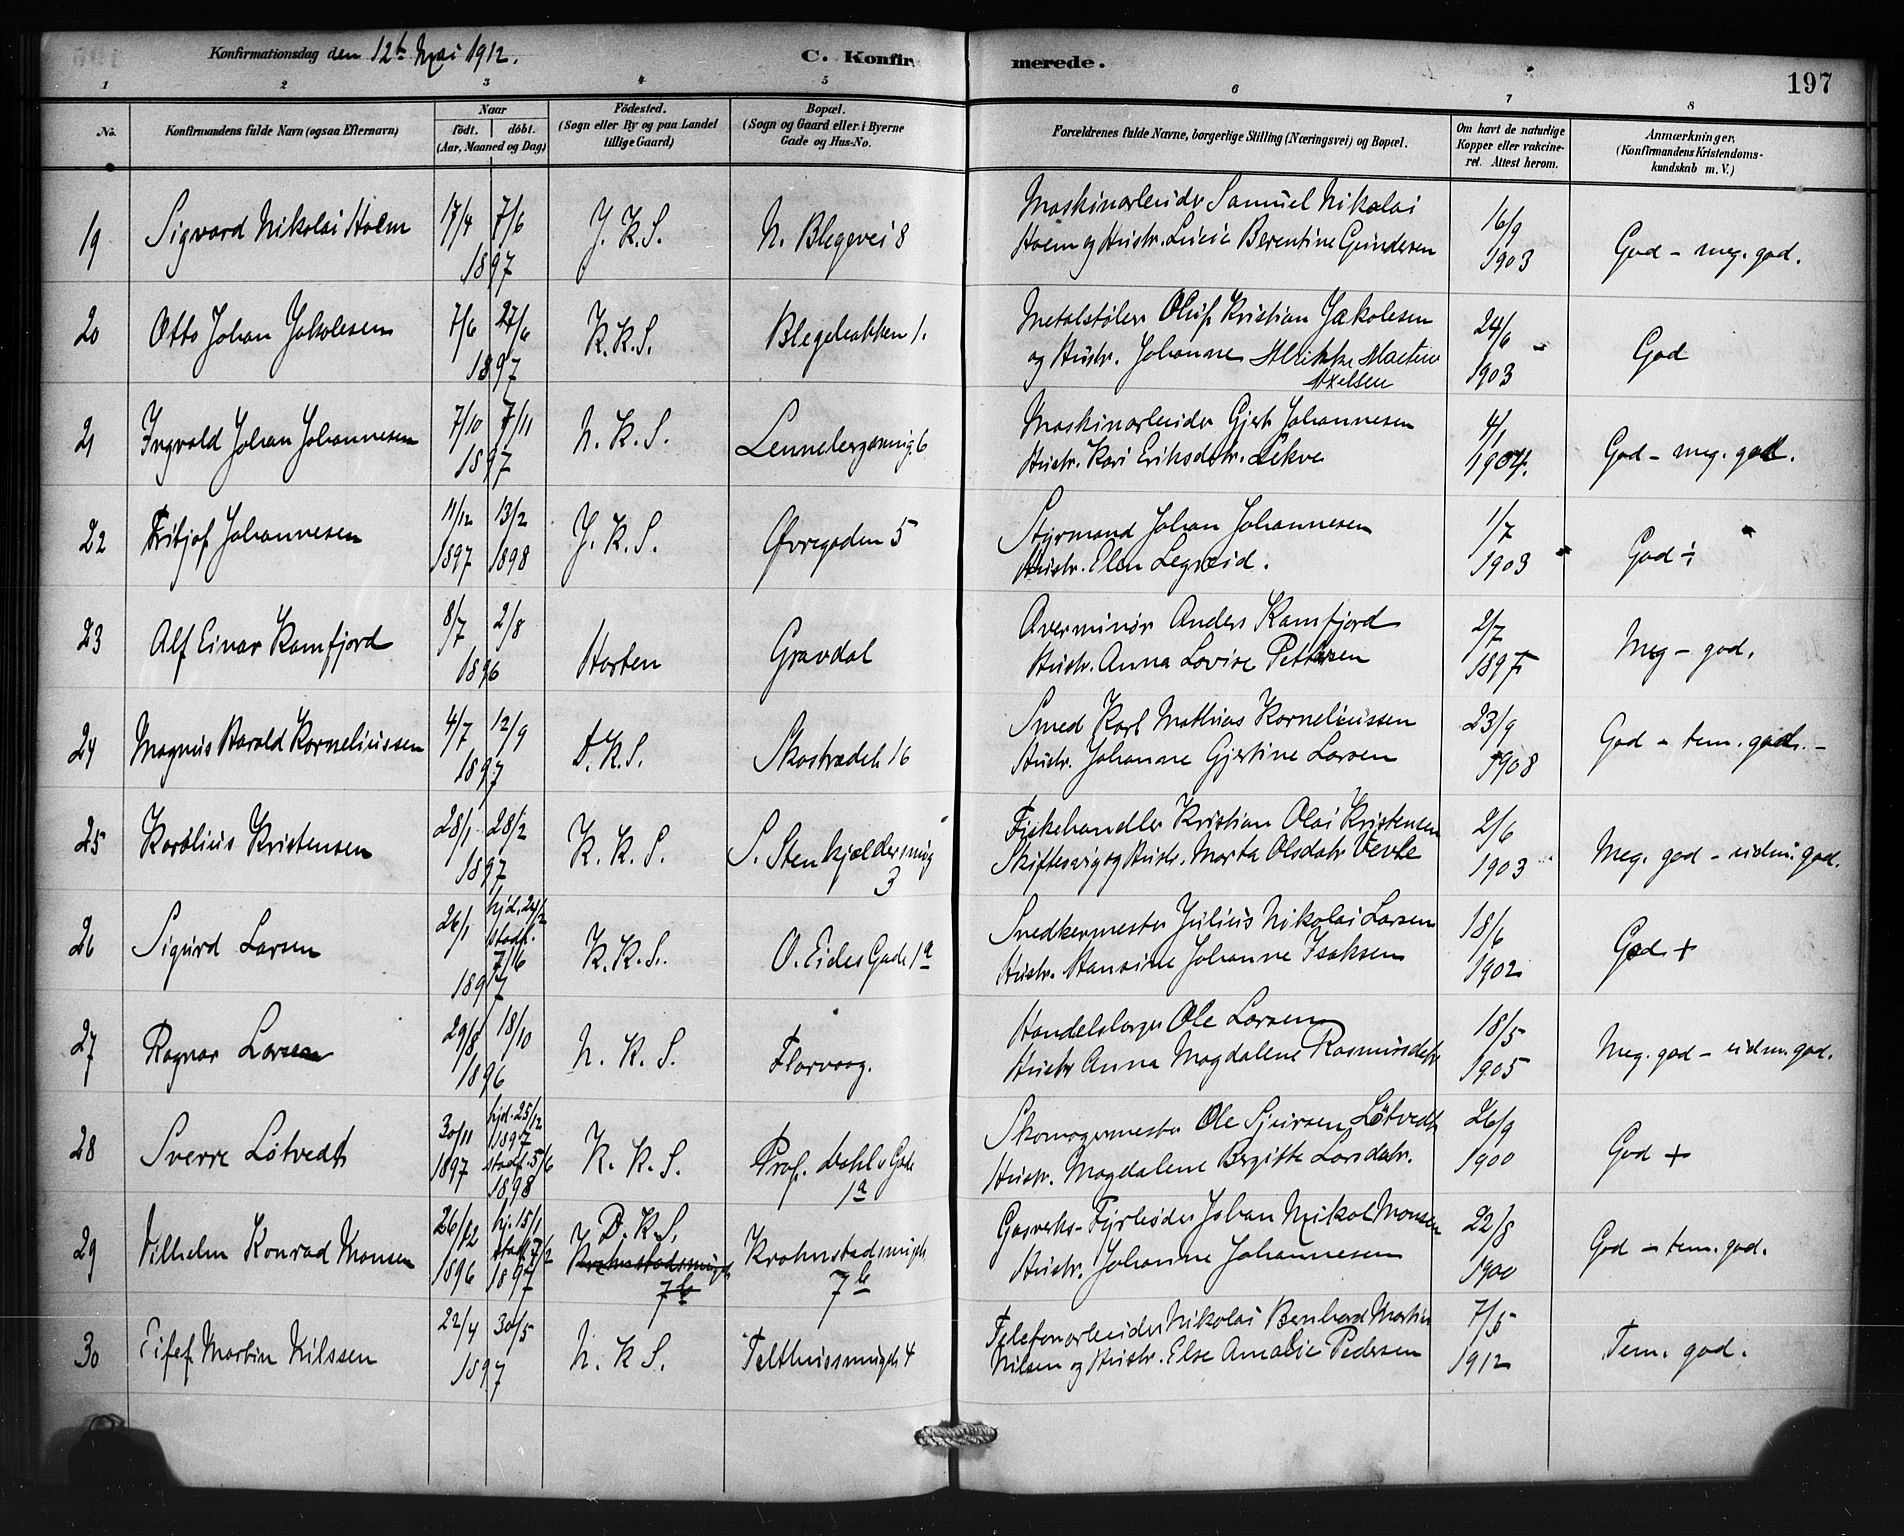 Konfirmationsdag den 12te Mai 1912.
C. Konfirmerede.
197
1 2 3 4 5 6 7 8
No.
Konfirmandens fulde Navn (ogsaa Efternavn)
Naar
födt. döbt.
(Aar, Maaned og Dag)
Födested.
(Sogn eller By og paa Landet
tillige Gaard)
Bopæl.
(Sogn og Gaard eller i Byerne
Gade og Hus-No.
Forældrenes fulde Navne, borgerlige Stilling (Næringsvei) og Bopæl.
Om havt de naturlige
Kopper eller vakcine-
ret. Attest herom.
Anmærkninger,
(Konfirmandens Kristendoms-
kundskab m. V.)
19 Sigvard Nikolai Holm 17/4 7/6 1897 J. K. S. N. Blegevei 8
Maskinarbeider Samuel Nikolai
Holm og Hustr. Lucie Berentine Gundersen
16/9 1903 God - meg. god.
20 Otto Johan Jakobsen 7/6 27/6 1897 K.K.S. Blegebakken 1.
Metalstøber Oluf Kristian Jakobsen
og Hustr. Johanne Henrikke Martine
Axelsen
24/6 1903 God
21 Ingvald Johan Johannesen 7/10 7/11 1897 N. K. S. Lennebergsmug. 6
Maskinarbeider Gjert Johannesen
Hustr. Kari Eriksdtr. Lekve
4/1 1904. God - meg. god.
22 Fritjof Johannesen 11/12 1897 13/2 1898 J. K. S. Øvregaden 5
Styrmand Johan Johannesen
Hustr. Elen Legreid.
1/7 1903 God ÷
23 Alf Einar Kamfjord 8/7 2/8 1896 Horten Gravdal
Overminør Anders Kamfjord
Hustr. Anna Lovise Pettersen
2/7 1897 Meg - god.
24 Magnus Harald Korneliussen 4/7 12/9 1897 D.K.S. Skostrædet 16
Smed Karl Mathias Korneliussen
Hustr. Johanne Gjertine Larsen
23/9 1908 God - tem. god. -
25 Karolius Kristensen 28/1 28/2 1897 K. K. S. S. Stenkjeldersmug
3
Fiskehandler Kristian Olai Kristensen
Skiftesvig og Hustr. Marta Olsdatr Vevle
2/6 1903 Meg. god - udm. god.
26 Sigurd Larsen 26/1 hjd. 24/2 stadf. 7/6 1897 K.K.S. O. Eides Gade 1a
Snedkermester Julius Nikolai Larsen
Hustr. Hansine Johanne Isaksen
18/6 1902 God +
27 Ragnar Larsen 29/8 18/10 1896 N. K. S. Florvaag.
Handelsborger Ole Larsen
Hustr Anna Magdalene Rasmusdatr
18/5 1905 Meg. god - udm. god.
28 Sverre Låtvedt 30/11 1897 hjd. 25/12 1897 stadf. 5/6 1898 K. K. S. Prof. Dahls Gade
1a
Skomagermester Ole Sjursen Låtvedt
Hustr. Magdalene Bergitte Larsdatr.
26/9 1900 God +
29 Vilhelm Konrad Monsen 26/12 1896 hj. 15/1 stadf. 7/2 1897 D.K.S. Krohnstadsmuget
7b
Krohnstadsmuget
7b
Gasverks-Fyrbøder Johan Mikal Monsen
Hustr. Johanne Johannesen
22/8 1900 God - tem. god.
30 Martin Nilssen 22/4 30/5 1897 N. K S. Felthussmuget 4
Telefonarbeider Nikolai Bernhard Martin
Nilsen og Hustr. Else Amalie Pedersen
7/5 1912 Tem. god.